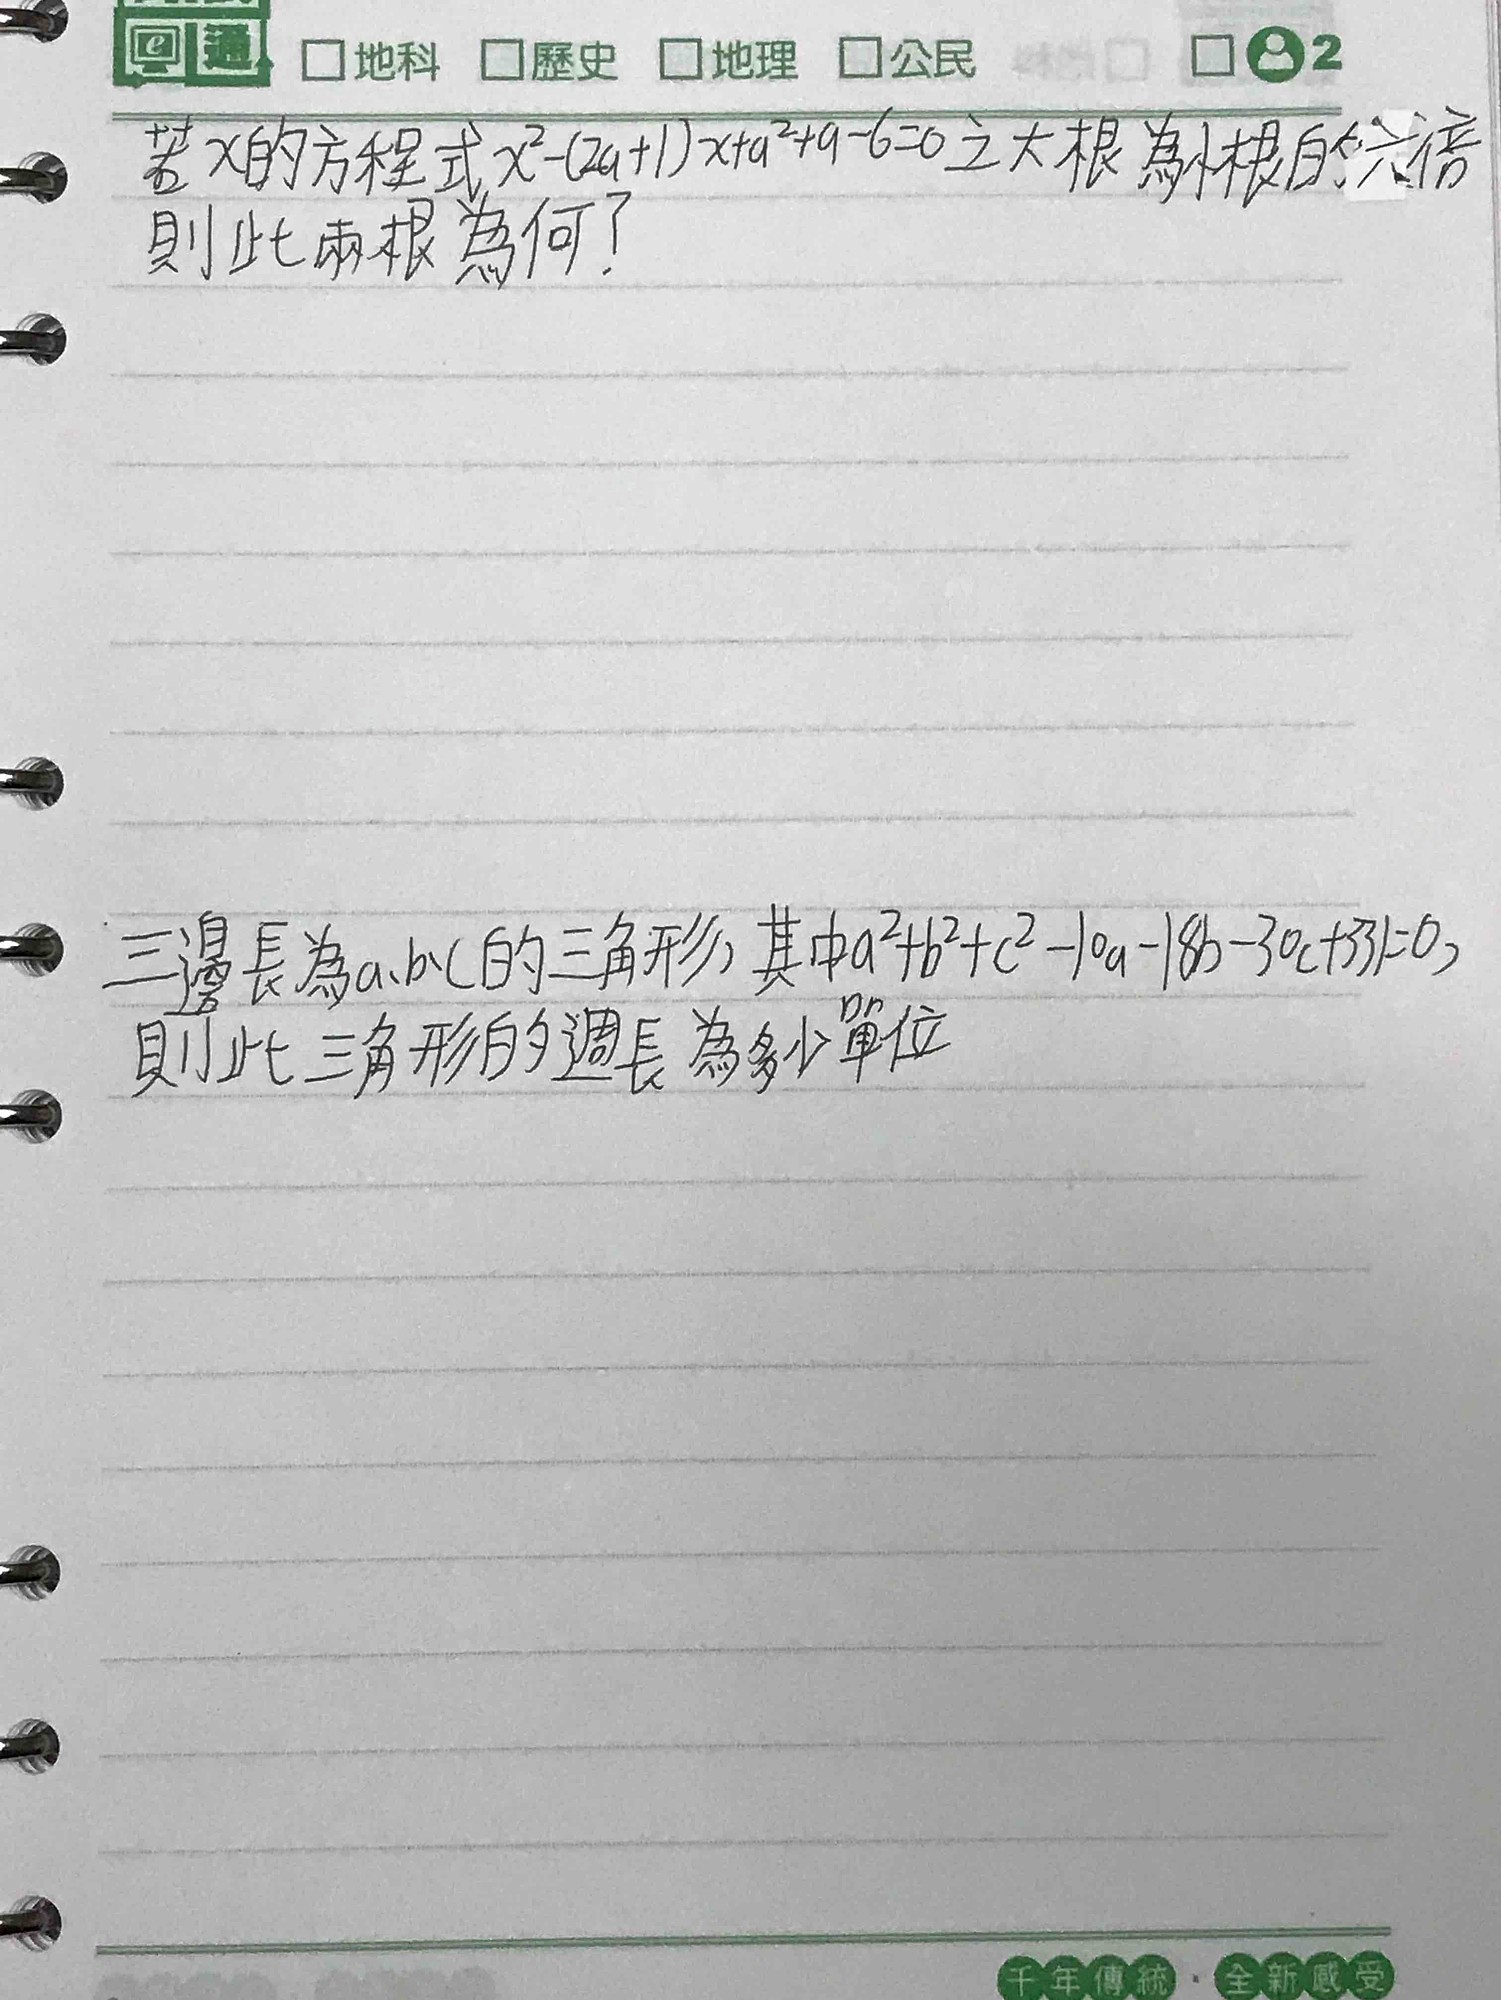 e 通 □地科 □歷史 □地理 □公民 □ 2
若x的方程式x²-(2a+1)x+a²+a-6=0之大根為小根的六倍
則此兩根為何?
三邊長為a、b、c的三角形,其中a²+b²+c²-10a-18b-30c+331=0,
則此三角形的週長為多少單位
千年傳統·全新感受